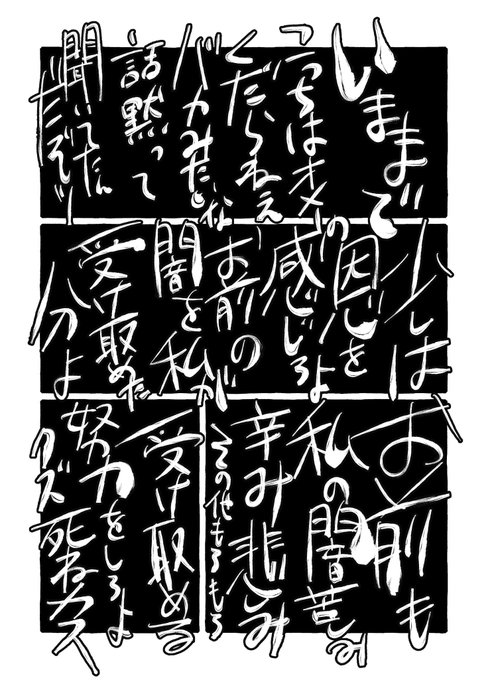 いままで
こっちはオメーの
くだらねえ
バカみたいな
話黙って
聞いてたんだぞ
少しは
恩を
感じろよ
お前の
闇を私が
受け取めた
分よ
お前も
私の闇苦しみ
辛み悲しみ
その他もろもろ
受け取める
努力をしろよ
クズ死ねカス